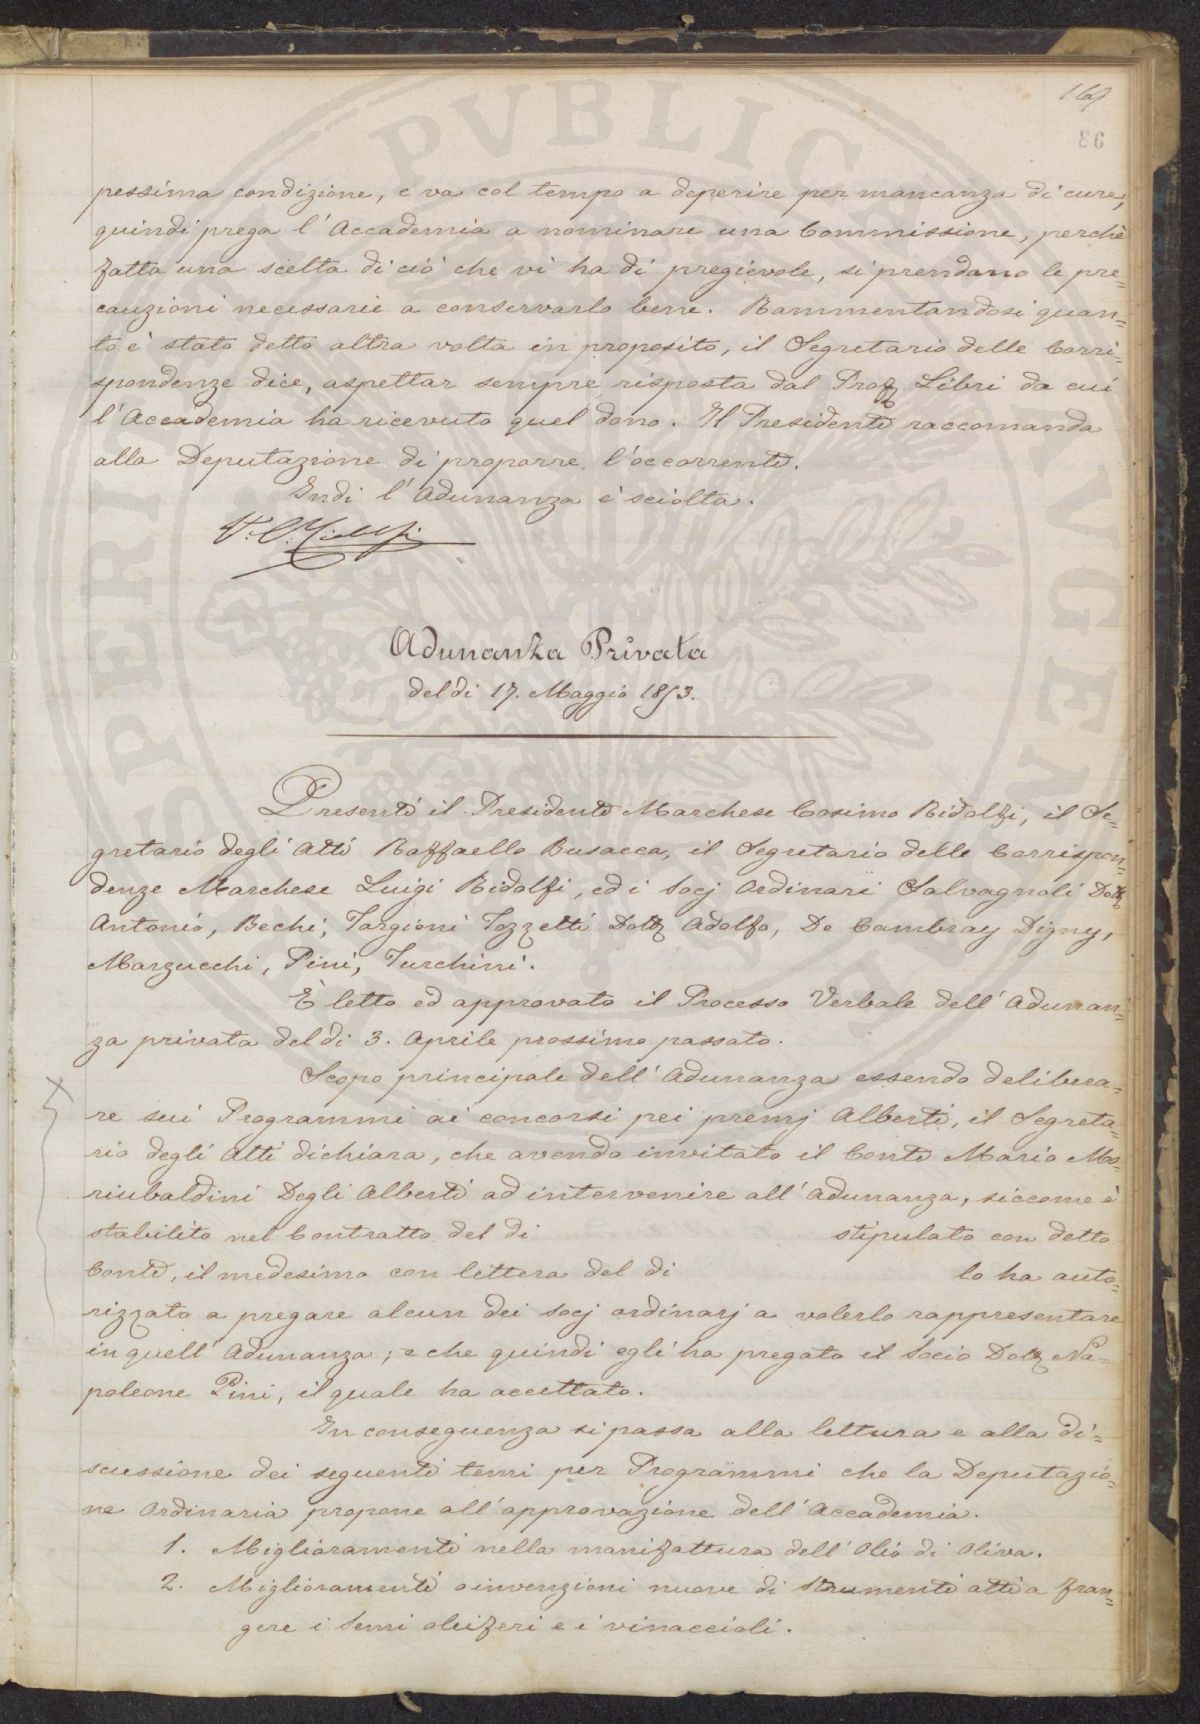 169
93
pessima condizione, e va col tempo a deperire per mancanza di cure,
quindi prega l'Accademia a nominare una Commissione, perchè
fatta una scelta di ciò che vi ha di pregievole, si prendano le pre=
cauzioni necessarie a conservarlo bene. Rammentandosi quan=
to è stato detto altra volta in proposito, il Segretario delle Corri=
spondenze dice, aspettar sempre risposta dal Prof. Libri da cui
l'Accademia ha ricevuto quel dono. Il Presidente raccomanda
alla Deputazione di proporre l'occorrente.
Indi l'Adunanza è sciolta.
Adunanza Privata
del dì 17. Maggio 1853.
Presenti il Presidente Marchese Cosimo Ridolfi, il Se=
gretario degli Atti Raffaello Busacca, il Segretario delle Corrispon=
denze Marchese Luigi Ridolfi, ed i Socj Ordinari Salvagnoli Dott.
Antonio, Bechi, Targioni Tozzetti Dott. Adolfo, De Cambray Digny,
Marzucchi, Pini, Turchini.
È letto ed approvato il Processo Verbale dell'Adunan=
za privata del dì 3. Aprile prossimo passato.
Scopo principale dell'Adunanza essendo delibera=
re sui Programmi ai concorsi pei premj Alberti, il Segreta=
rio degli Atti dichiara, che avendo invitato il Conte Mario Mo=
riubaldini Degli Alberti ad intervenire all'Adunanza, siccome è
stabilito nel Contratto del dì stipulato con detto
Conte, il medesimo con lettera del dì lo ha auto=
rizzato a pregare alcun dei socj ordinarj a volerlo rappresentare
in quell'Adunanza; e che quindi egli ha pregato il Socio Dott. Na=
poleone Pini, il quale ha accettato.
In conseguenza si passa alla lettura e alla di=
scussione dei seguenti temi per Programmi che la Deputazio=
ne Ordinaria propone all'approvazione dell'Accademia.
1. Miglioramenti nella manifattura dell'Olio di Oliva.
2. Miglioramenti o invenzioni nuove di Strumenti atti a fran=
gere i Semi oleiferi e i vinaccioli.